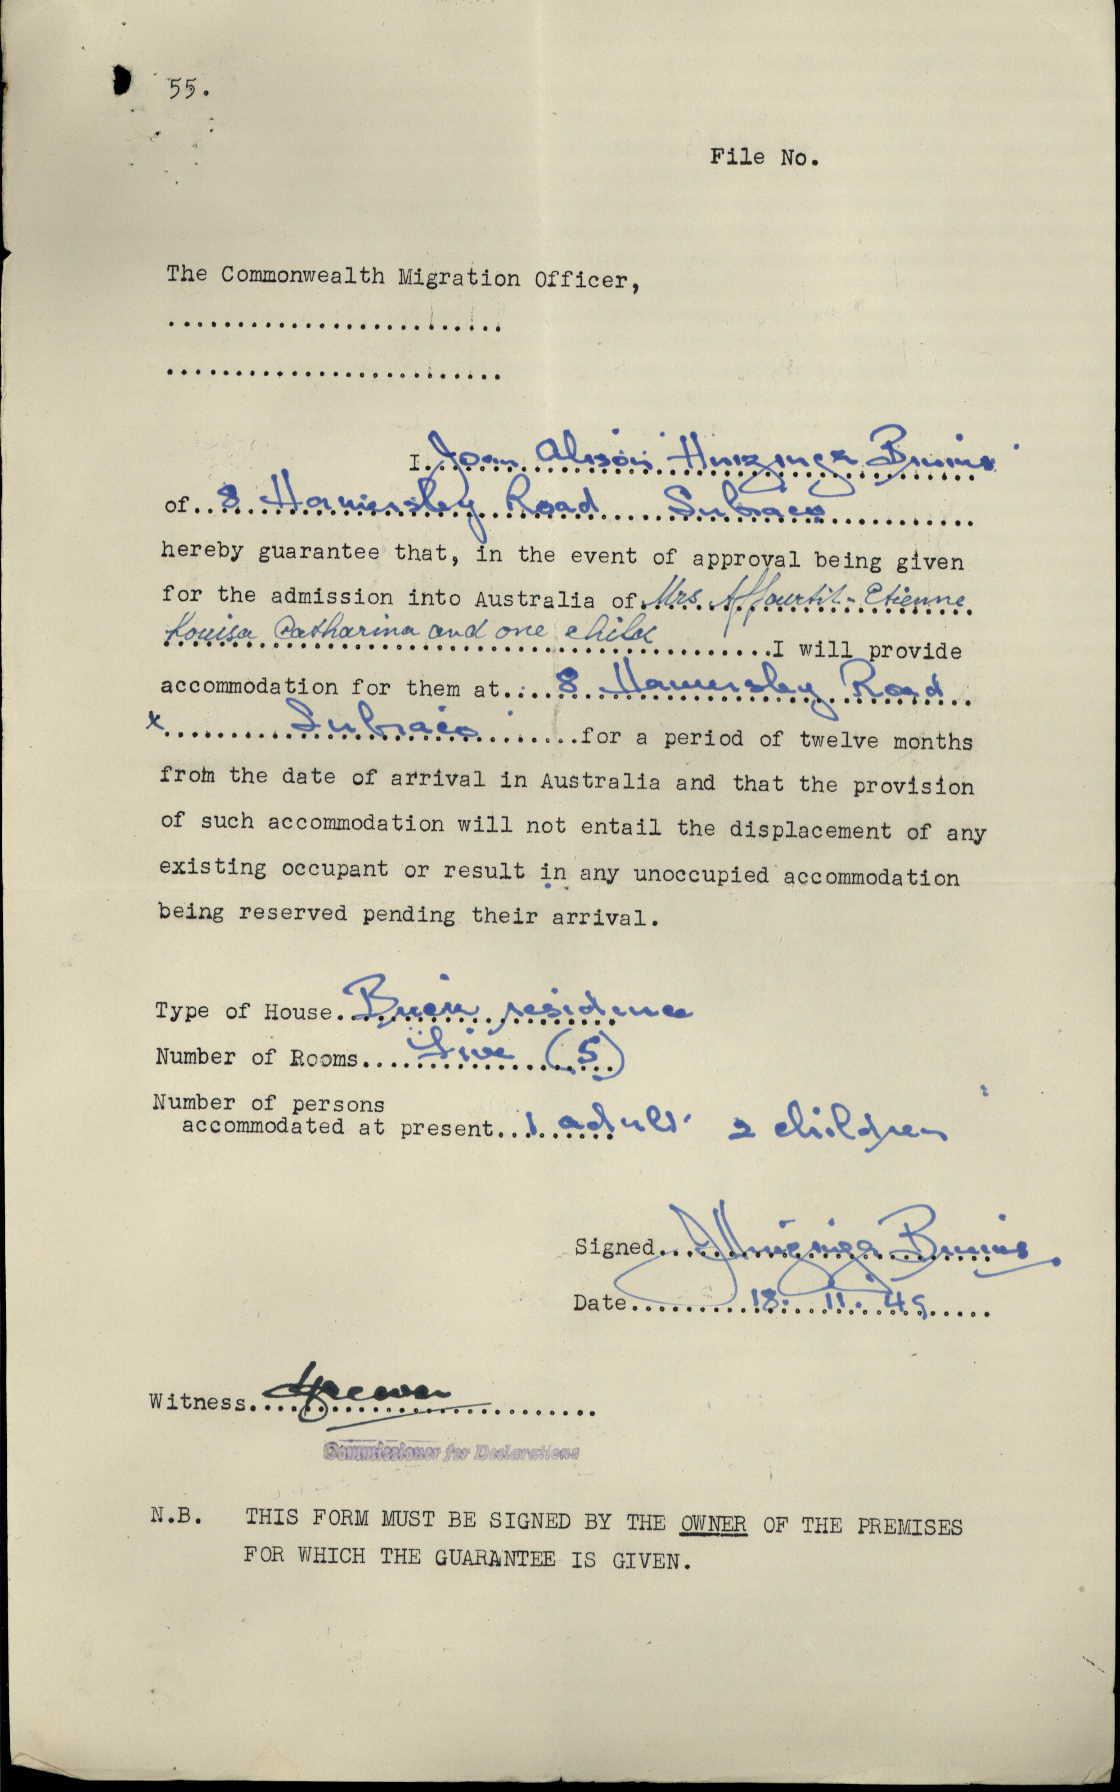 55.
File No.
The Commonwealth Migration Officer,
..........................
..........................
I. Joan Alison Huizinga Bruins
of.. 8 Hamersley Road Subiaco
hereby guarantee that, in the event of approval being given
for the admission into Australia of Mrs. Affourtit-Etienne
Louisa Catharina and one child I will provide
accommodation for them at.... 8 Hamersley Road
x Subiaco for a period of twelve months
from the date of arrival in Australia and that the provision
of such accommodation will not entail the displacement of any
existing occupant or result in any unoccupied accommodation
being reserved pending their arrival.
Type of House. Brick residence
Number of Rooms.... Five (5)
Number of persons
accommodated at present... 1 adult 2 children
Signed... JHuizinga Bruins
Date 18. 11. 49
Witness..
Commissioner for Declarations
N.B. THIS FORM MUST BE SIGNED BY THE OWNER OF THE PREMISES
FOR WHICH THE GUARANTEE IS GIVEN.